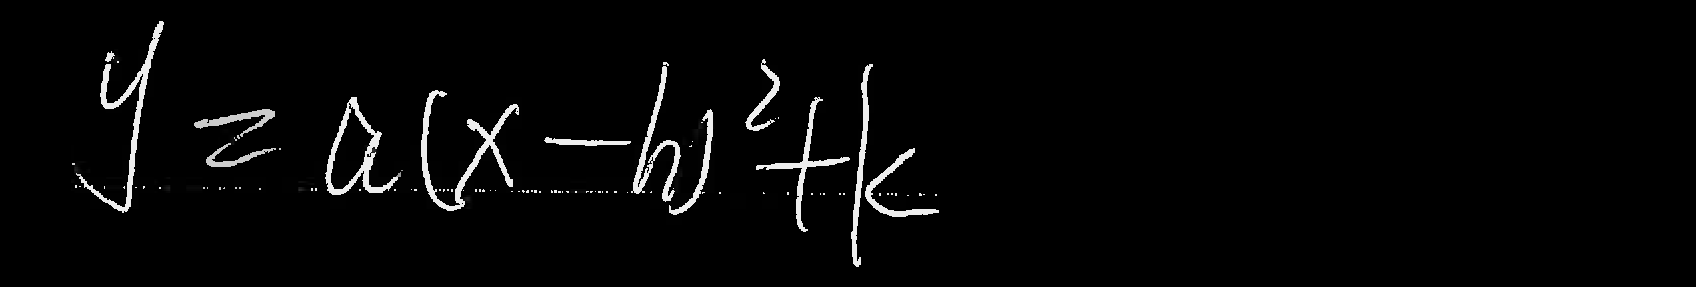 y = a(x-h)²+k